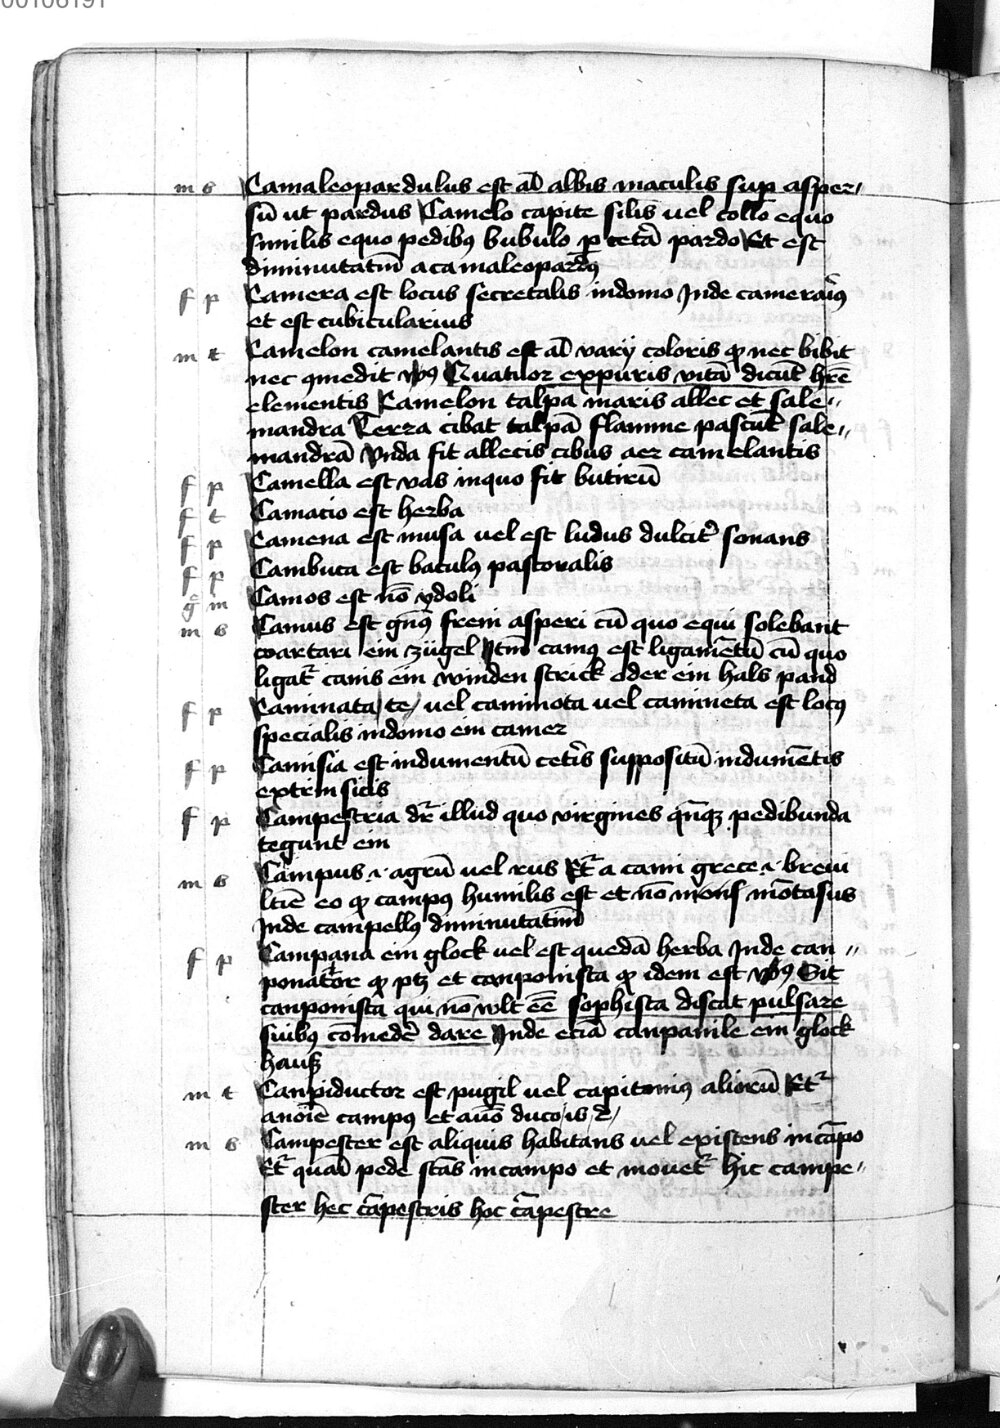 00106191
m s Camaleopardulus est aĺ albis maculis sup asper⸗
sū ut pardus Camelo capite silis uel collo equo
similis equo pedibꝰ bubulo p cetā pardo Et est
diminutatiū a camaleopardꝰ
f p Camera est locus secretalis indomo Inde camerariꝰ
et est cubicularius
m t Camelon camelantis est aĺ varij coloris qꝫ nec bibit
nec ꝯmedit vꝰ Quatuor expuris vitā dicūt hr̄e
elementis Camelon talpa maris allec et sale⸗
mandra Terra cibat talpā flamme pascūt sale⸗
mandrā Vnda fit allecis cibus aer camelantis
f p Camella est vas inquo fit butirū
f t Camacio est herba
f p Camena est musa uel est ludus dulcit̾ sonans
f p Cambuta est baculꝰ pastoralis
g m Camos est nō ydoli
m s Camus est gn̄ꝰ freni asperi cū quo equi solebant
coartari ein zügel Itm̄ camꝰ est ligamētū cū quo
ligat᷑ canis ein winden strick oder ein hals pand
f p Caminata / te / uel caminota uel camineta est locꝰ
specialis indomo ein camer
f p Camisia est indumentū cetīs suppositū indumētis
extrinsicis
f p Campestria dr̄ illud quo virgines qn̄qꝫ pedibunda
tegunt ein
m s Campus .i. agrū uel rus Et᷑ a cami grece .i. breui
ltīe eo qꝫ campꝰ humilis est et nō mons mōtosus
Inde campellꝰ diminutatiū
f p Campana ein glock uel est quedā herba Inde can⸗
ponator qꝫ ptꝫ et canponista qꝫ idem est vꝰ Sit
canponista qui nō vlt eē sophista discat pulsare
suibꝰ cōmedē dare Inde eciā canpanile ein glock
hauß
m t Canpiductor est pugil uel capitoniꝰ aliorū Et᷑
a noīe campꝰ et auō duco / is / ē /
m s Campester est aliquis habitans uel existens in cāpo
Et᷑ quasi pede stās incampo et mouet᷑ hic campe⸗
ster hec cāpestris hoc cāpestre